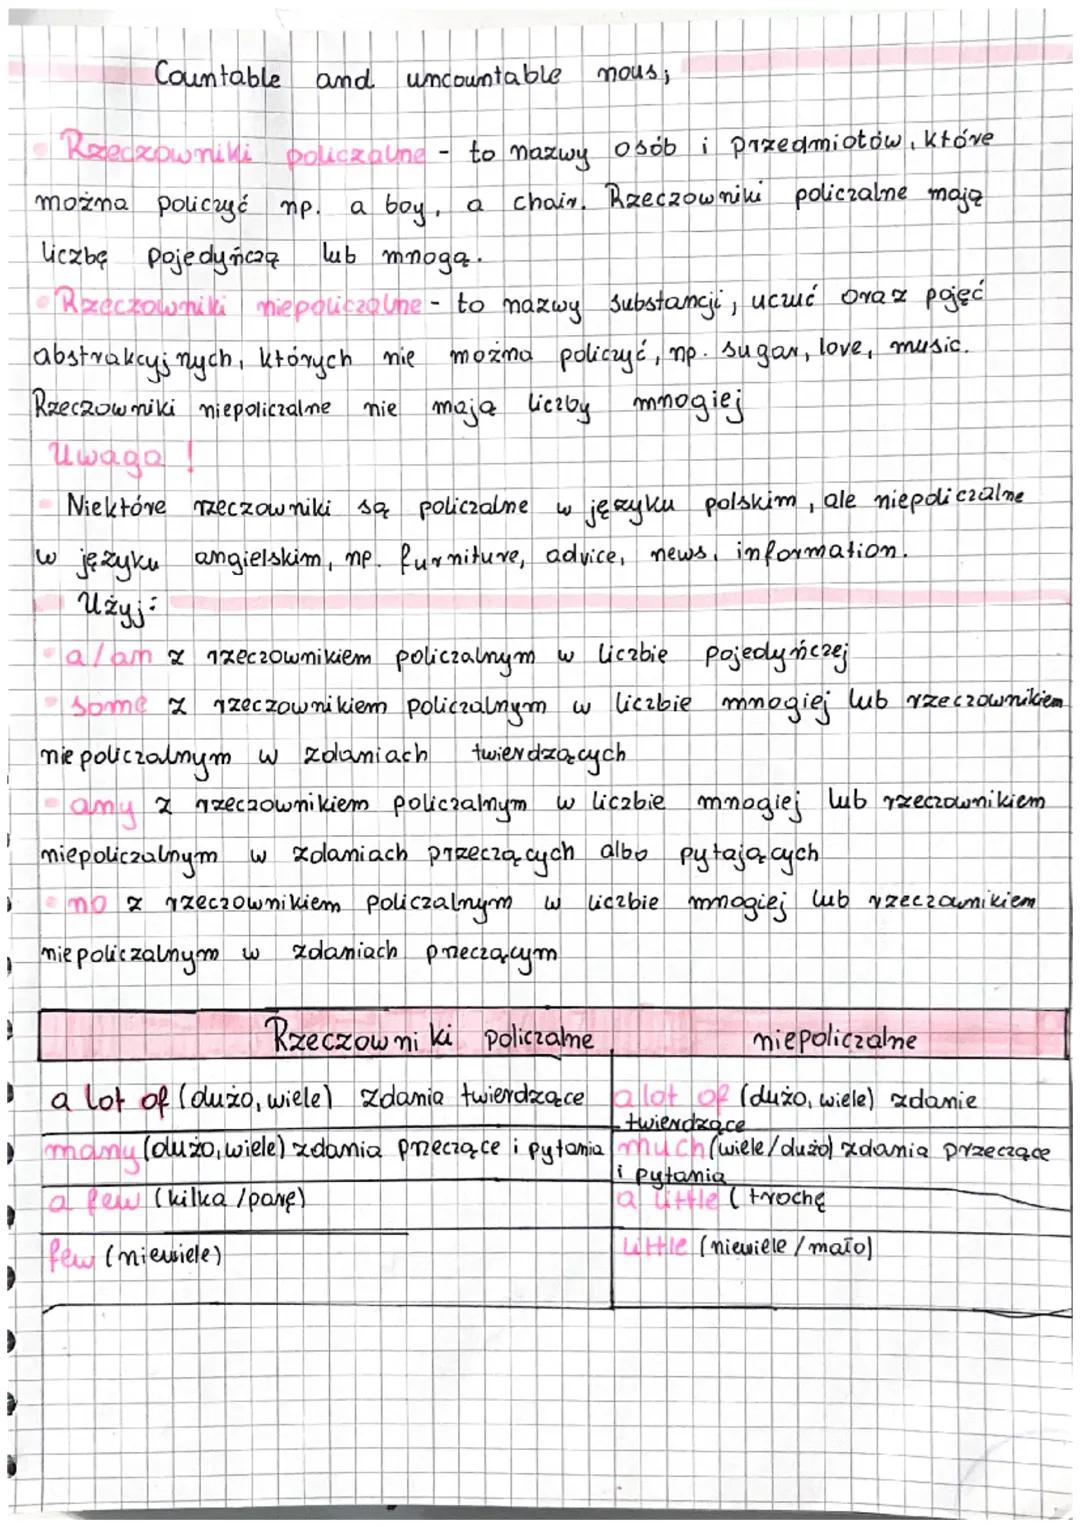 Countable and uncountable nous;
Rzeczowniki policzalne - to nazwy osób i przedmiotów, które
można policzyć np. a boy, a chair. Rzeczowniki policzalne mają
liczbę pojedyńczą lub mnogą.
Rzeczowniki niepoliczalne - to nazwy substancji, uczuć oraz pojęć
abstrakcyjnych, których nie można policzyć, np. sugar, love, music.
Rzeczowniki niepoliczalne nie mają liczby mnogiej
Uwaga!
Niektóre rzeczowniki są policzalne w języku polskim, ale niepoliczalne
w języku angielskim, np. furniture, advice, news, information.
Użyj:
a/an z rzeczownikiem policzalnym w liczbie pojedyńczej
some z rzeczownikiem policzalnym w liczbie mnogiej lub rzeczownikiem
niepoliczalnym w zdaniach twierdzących
any z rzeczownikiem policzalnym w liczbie mnogiej lub rzeczownikiem
niepoliczalnym w zdaniach przeczących albo pytających
no z rzeczownikiem policzalnym w liczbie mnogiej lub rzeczownikiem
niepoliczalnym w zdaniach przeczącym
Rzeczowniki policzalne niepoliczalne
a lot of (dużo, wiele) zdania twierdzące
a lot of (dużo, wiele) zdanie
twierdzące
many (dużo, wiele) zdania przeczące i pytania
much (wiele/dużo) zdania przeczące
i pytania
a few (kilka /parę)
a little (trochę
few (niewiele)
little (niewiele /mało)